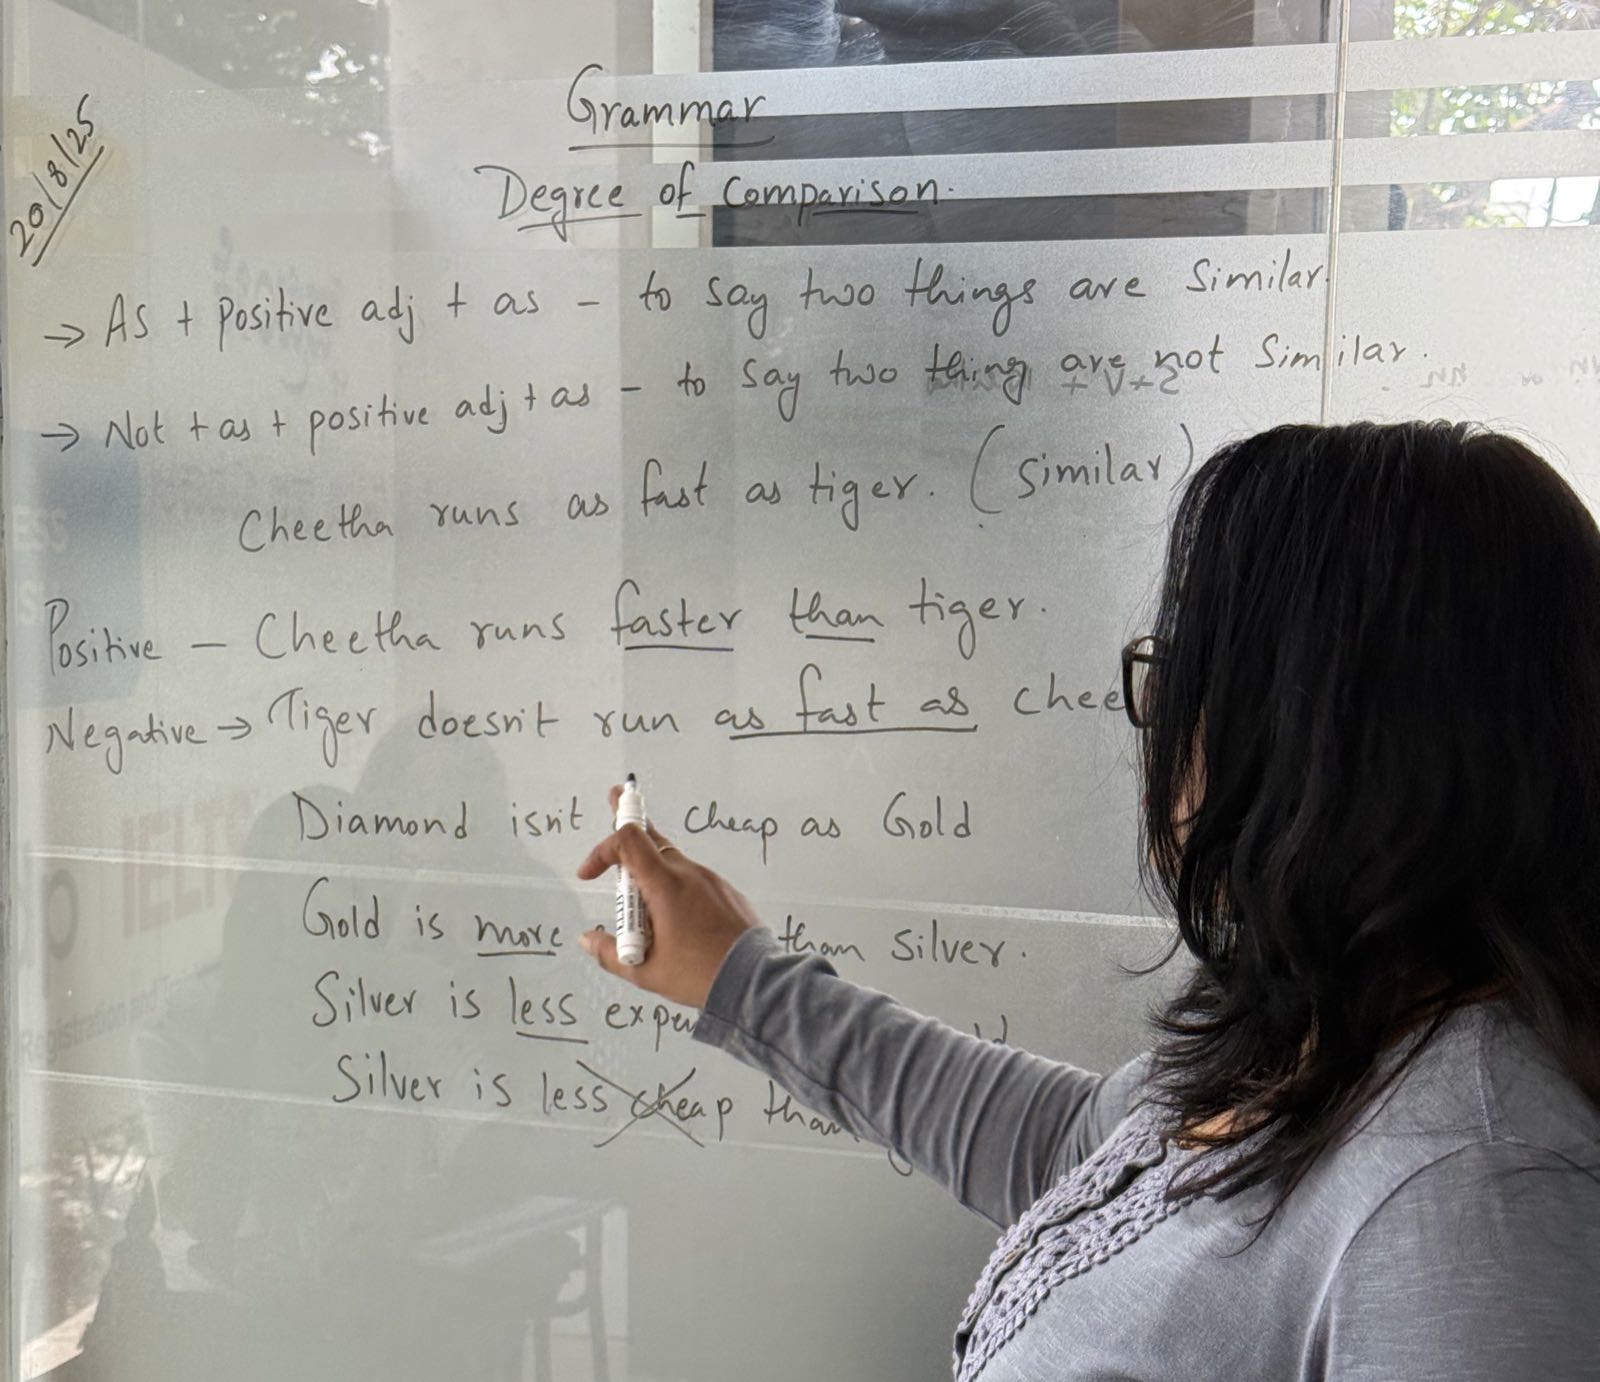 20/8/25
Grammar
Degree of Comparison.
→ As + positive adj + as - to say two things are Similar.
→ Not + as + positive adj + as - to say two thing are not Similar.
Cheetha runs as fast as tiger. (Similar)
Positive - Cheetha runs faster than tiger.
Negative → Tiger doesn't run as fast as chee
Diamond isn't cheap as Gold
Gold is more than Silver.
Silver is less expen
Silver is less cheap than
IELT